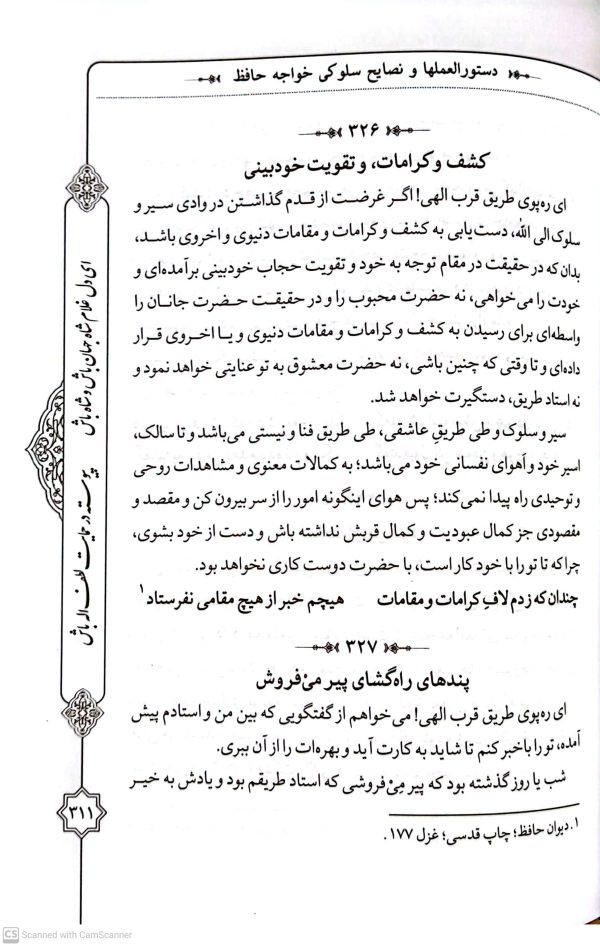 دستورالعملها و نصایح سلوکی خواجه حافظ
۳۲۶
کشف و کرامات، و تقویت خودبینی
ای ره‌پوی طریق قرب الهی! اگر غرضت از قدم گذاشتن در وادی سیر و
سلوک الی الله، دست‌یابی به کشف و کرامات و مقامات دنیوی و اخروی باشد،
بدان که در حقیقت در مقام توجه به خود و تقویت حجاب خودبینی برآمده‌ای و
خودت را می‌خواهی، نه حضرت محبوب را و در حقیقت حضرت جانان را
واسطه‌ای برای رسیدن به کشف و کرامات و مقامات دنیوی و یا اخروی قرار
داده‌ای و تا وقتی که چنین باشی، نه حضرت معشوق به تو عنایتی خواهد نمود و
نه استاد طریق، دستگیرت خواهد شد.
سیر و سلوک و طی طریقِ عاشقی، طی طریق فنا و نیستی می‌باشد و تا سالک،
اسیر خود و اَهوای نفسانی خود می‌باشد؛ به کمالات معنوی و مشاهدات روحی
و توحیدی راه پیدا نمی‌کند؛ پس هوای اینگونه امور را از سر بیرون کن و مقصد و
مقصودی جز کمال عبودیت و کمال قربش نداشته باش و دست از خود بشوی،
چرا که تا تو را با خود کار است، با حضرت دوست کاری نخواهد بود.
چندان که زدم لافِ کرامات و مقامات هیچم خبر از هیچ مقامی نفرستاد۱
۳۲۷
پندهای راه‌گشای پیر مِیْ‌فروش
ای ره‌پوی طریق قرب الهی! می‌خواهم از گفتگویی که بین من و استادم پیش
آمده، تو را باخبر کنم تا شاید به کارت آید و بهره‌ات را از آن ببری.
شب یا روز گذشته بود که پیر مِیْ‌فروشی که استاد طریقم بود و یادش به خیر
۱. دیوان حافظ؛ چاپ قدسی؛ غزل ۱۷۷.
ای دل غلام شاه جهان باش و شاه باش
پیوسته در حمایت لطف اله باش
۳۱۱
CS Scanned with CamScanner